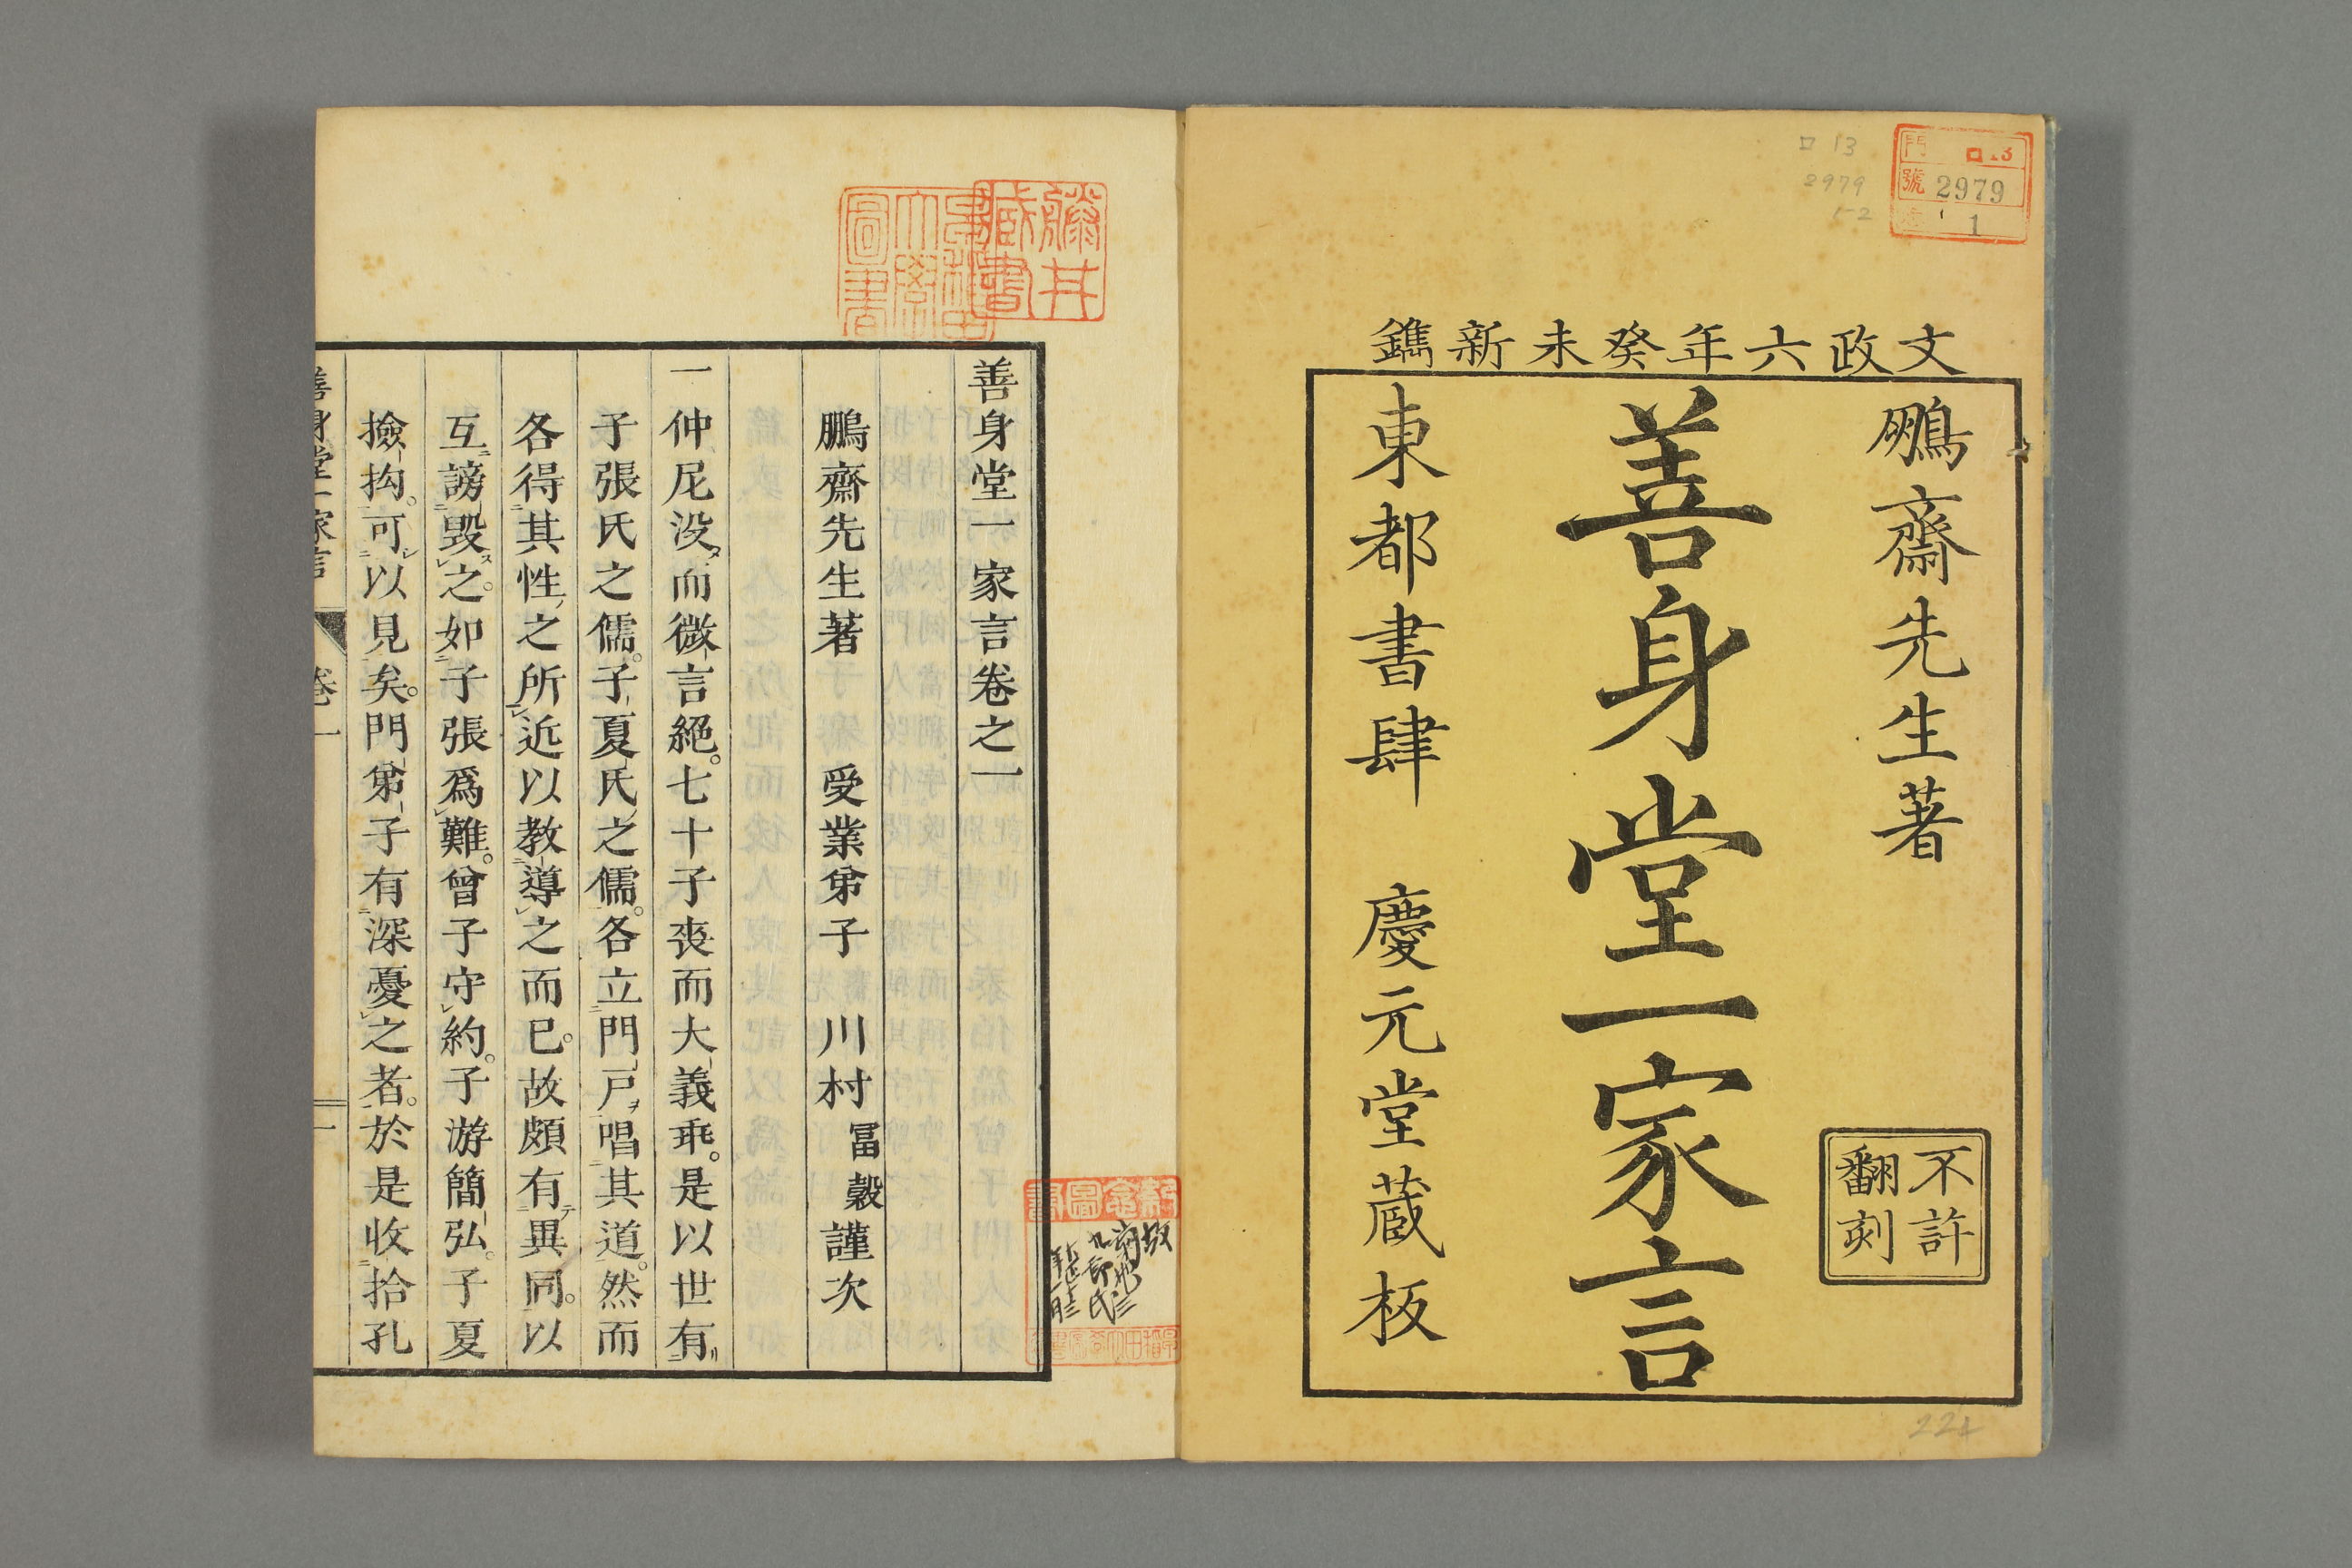 文政六年癸未新鐫
鵬齋先生著
不許
翻刻
善身堂一家言
東都書肆　慶元堂蔵板
門 ロ13
號 2979
1
ロ 13
2979
1-2
藤井
藏書
早稲田
大學
圖書
善身堂一家言卷之一
鵬齋先生著　受業弟子　川村　冨穀謹次
一仲尼没而微言絕。七十子喪而大義乖。是以世有
子張氏之儒。子夏氏之儒。各立門戸唱其道。然而
各得其性之所近以教導之而已。故頗有異同。以
互謗毀之。如子張爲難。曾子守約。子游簡弘。子夏
撿拘。可以見矣。門弟子有深憂之者。於是收拾孔
善身堂一家言　卷一　一